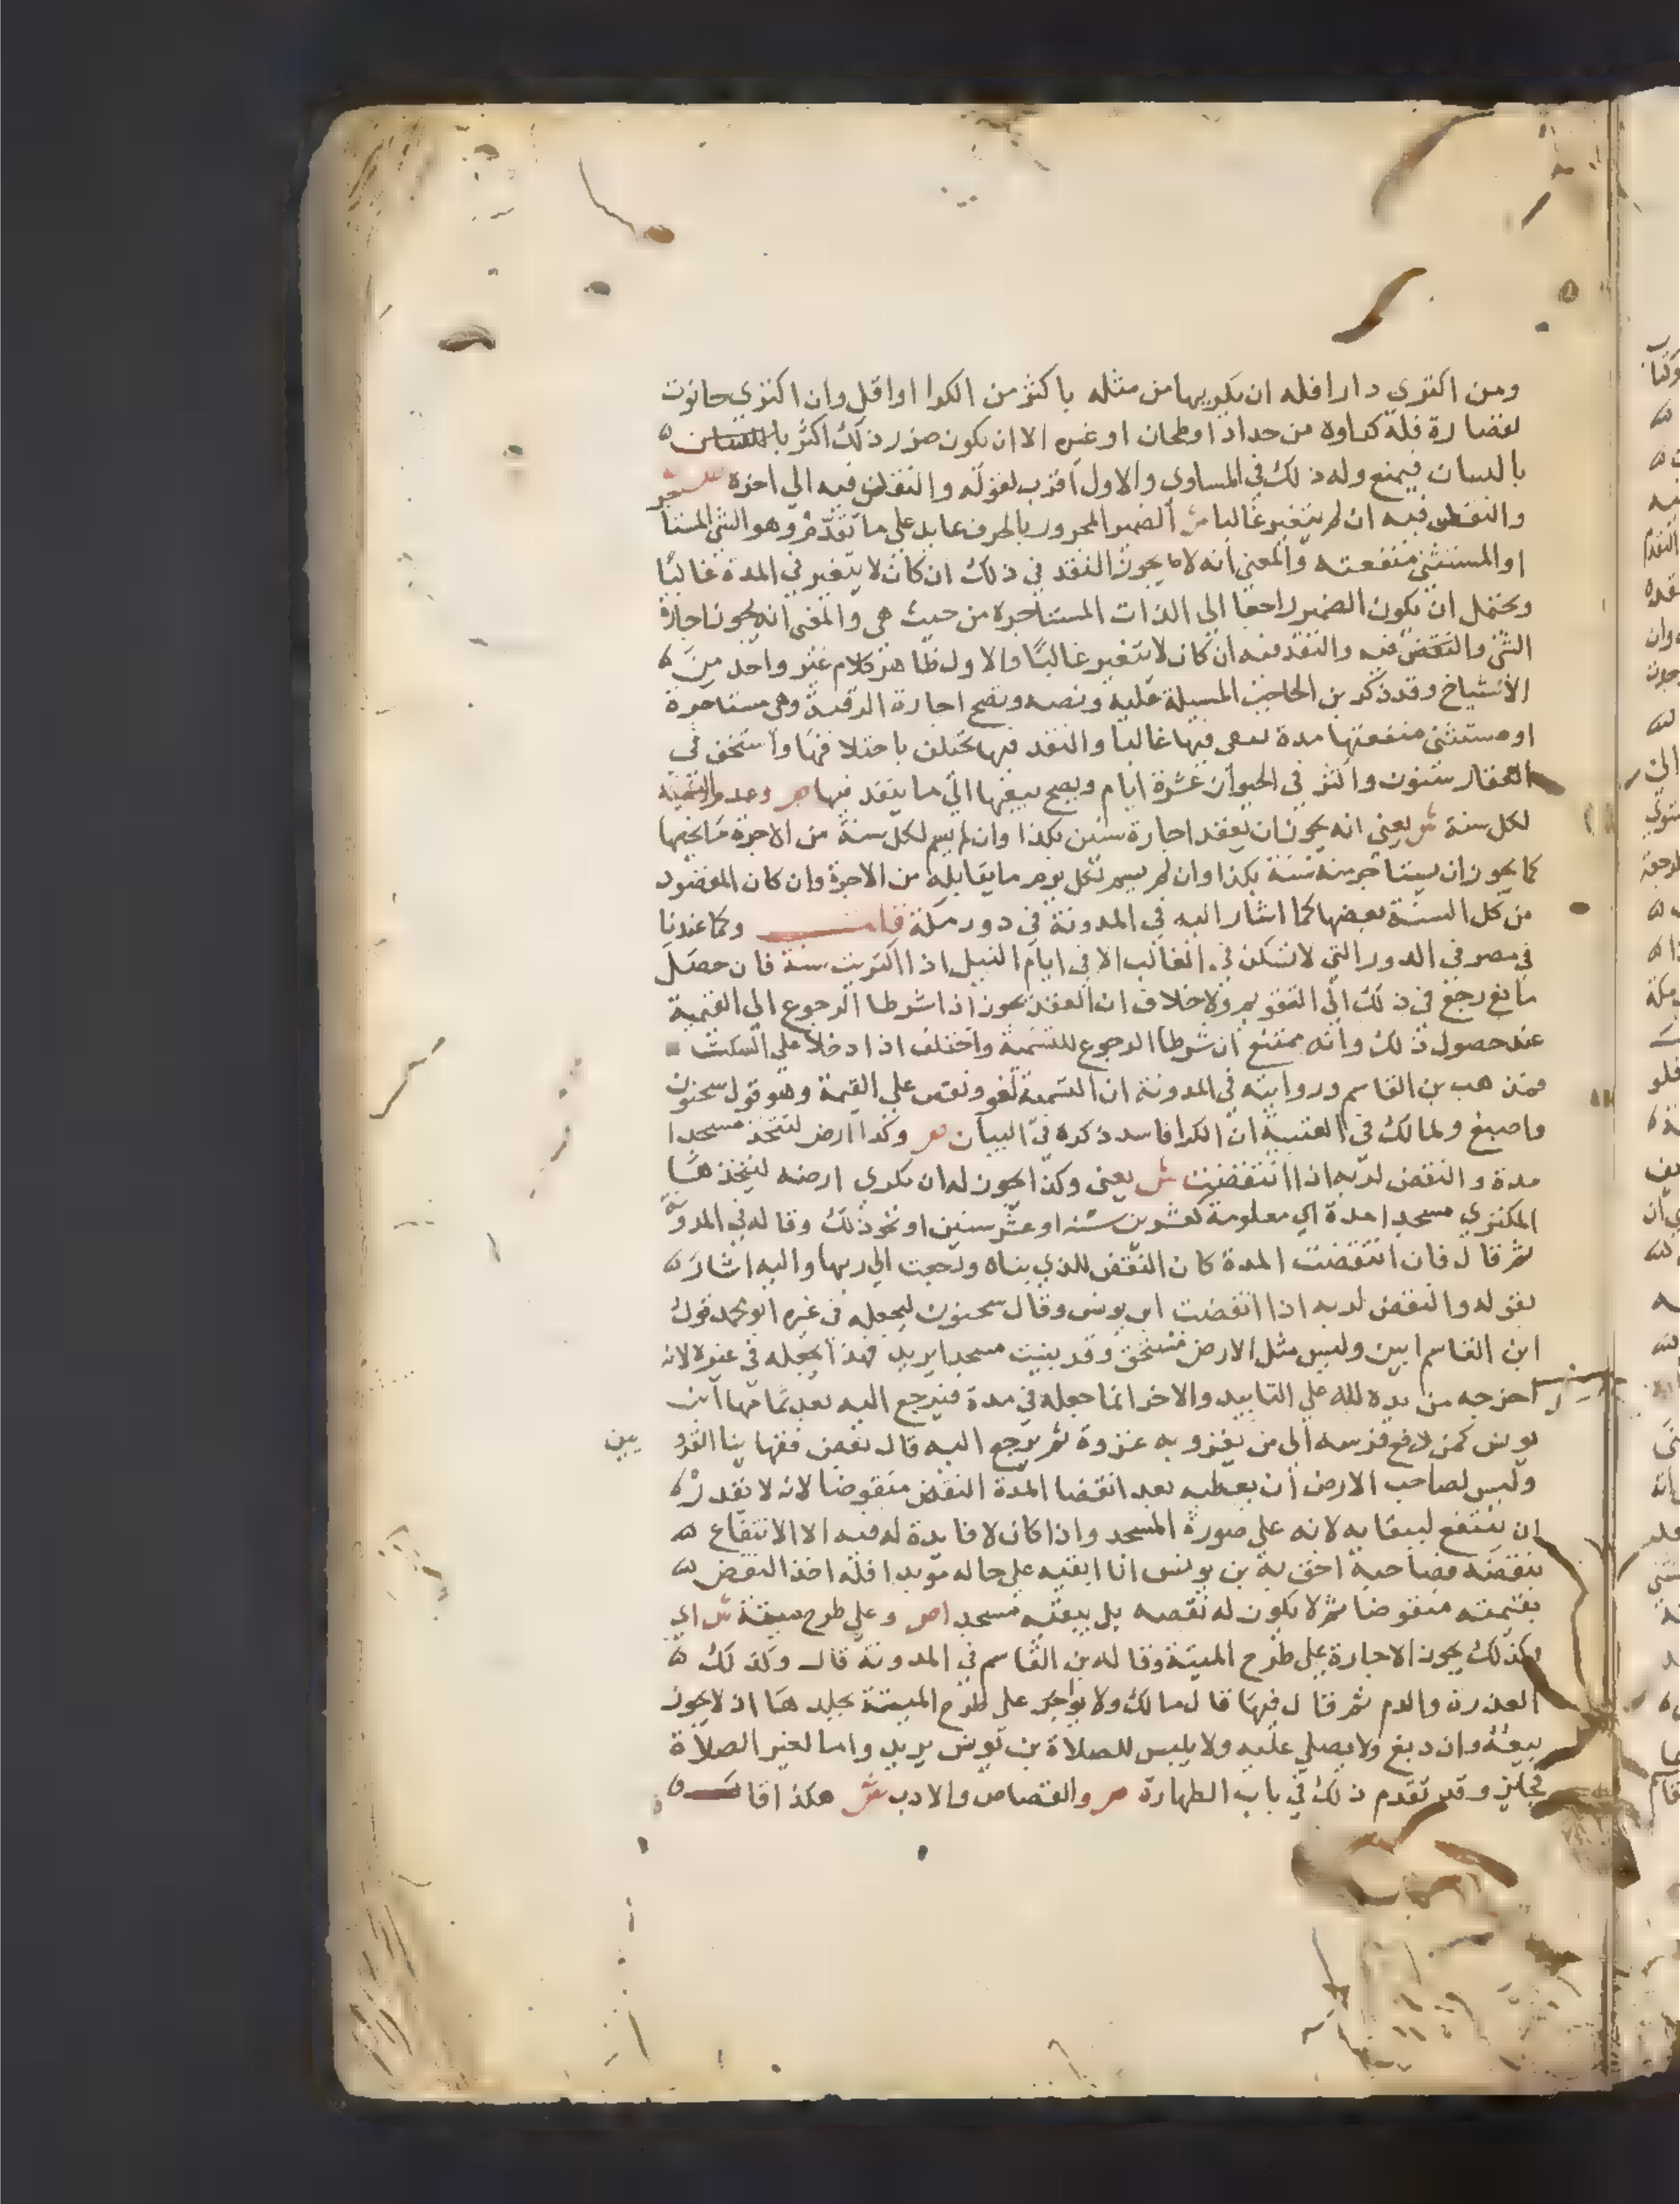 ومن اكتري دارا فله ان يكريها من مثله باكثر من الكرا او اقل وان اكتري حانوت
لقصارة فله كراوه من حداد او طحان او غيره الا ان يكون ضرر ذلك اكثر
بالبنيان فيمنع وله ذلك في المساوي والاول اقرب لقوله والنقض فيه الي اخره
والنقض فيه ان لم يتغير غالبا ش الضمير المجرور بالحرف عايد علي ما تقدم وهو الشي المستا
او المستثني منفعته والمعني انه لا يجوز النقد في ذلك ان كان لا يتغير في المدة غالبًا
ويحتمل ان يكون الضمير راجعا الي الذات المستاجرة من حيث هي والمعني انه يجوز اجارة
الشي والنقض فيه والنقد فيه ان كان لا يتغير غالبًا والاول ظاهر كلام غير واحد من
الاشياخ وقد ذكر بن الحاجب المسيلة عليه ونصه وتصح اجارة الرقبة وهي مستاجرة
او مستثني منفعتها مدة تبقي فيها غالبا والنقد فيها يختلف باختلافها واستخف في
العقار سنون واكثر في الحيوان عشرة ايام ويصح بيعها الي ما ينقد فيها ص وعدم التسمية
لكل سنة ش يعني انه يجوز ان يعقد اجارة سنين بكذا وان لم يسم لكل سنة من الاجرة ما يخصها
كما يجوز ان يستاجر منه سنة بكذا وان لم يسم لكل يوم ما يقابله من الاجرة وان كان المقصود
من كل السنة بعضها كما اشار اليه في المدونة في دور مكة وكما عندنا
في مصر في الدور التي لا تسكن في الغالب الا في ايام النيل اذا اكتريت سنة فان حصل
مانع رجع في ذلك الي التقويم ولا خلاف ان العقد يجوز اذا شرطا الرجوع الي القيمة
عند حصول ذلك وانه ممتنع ان شرطا الرجوع للتسمية واختلف اذا دخلا علي السكت
فمذهب بن القاسم وروايته في المدونة ان التسمية لغو ويقض علي القيمة وهو قول سحنون
واصبغ ولمالك في العتبية ان الكرا فاسد ذكره في البيان ص وكرا ارض لتتخذ مسجدا
مدة والنقض لربه اذا انقضت ش يعني وكذا يجوز له ان يكري ارضه ليتخذها
المكتري مسجدا مدة اي معلومة كعشرين سنة او عشر سنين او نحو ذلك وقاله في المدونة
ثم قال فان انقضت المدة كان النقض للذي بناه ورجعت الي ربها واليه اشار
بقوله والنقض لربه اذا انقضت ابن يونس وقال سحنون ليجعله في غيره ابو محمد قول
ابن القاسم ابين وليس مثل الارض تستحق وقد بنيت مسجدا يريد فهذا يجعله في غيره لانه
اخرجه من يده لله علي التابيد والاخر انما جعله في مدة فيرجع اليه بعد تمامها ابن
يونس كمن دفع فرسه الي من يغزو به غزوة ثم يرجع اليه قال بعض فقهاينا القرو
يين
وليس لصاحب الارض ان يعطيه بعد انقضا المدة النقض منقوضا لانه لا يقدر
ان ينتفع ببقايه لانه علي صورة المسجد واذا كان لا فايدة له فيه الا الانتفاع
بنقضه فصاحبه احق به بن يونس اما ابقيه علي حاله موبدا فله اخذ النقض
بقيمته منقوضا ثم لا يكون له نقضه بل يبقيه مسجدا ص وعلي طرح ميتة ش اي
وكذلك يجوز الاجارة علي طرح الميتة وقاله بن القاسم في المدونة قال وكذلك
العذرة والدم ثم قال فيها قال مالك ولا يواجر علي طرح الميتة بجلدها اذ لا يجوز
بيعه وان دبغ ولا يصلي عليه ولا يلبس للصلاة بن يونس يريد واما لغير الصلاة
فجايز وقد تقدم ذلك في باب الطهارة ص والقصاص والادب ش هكذا قال